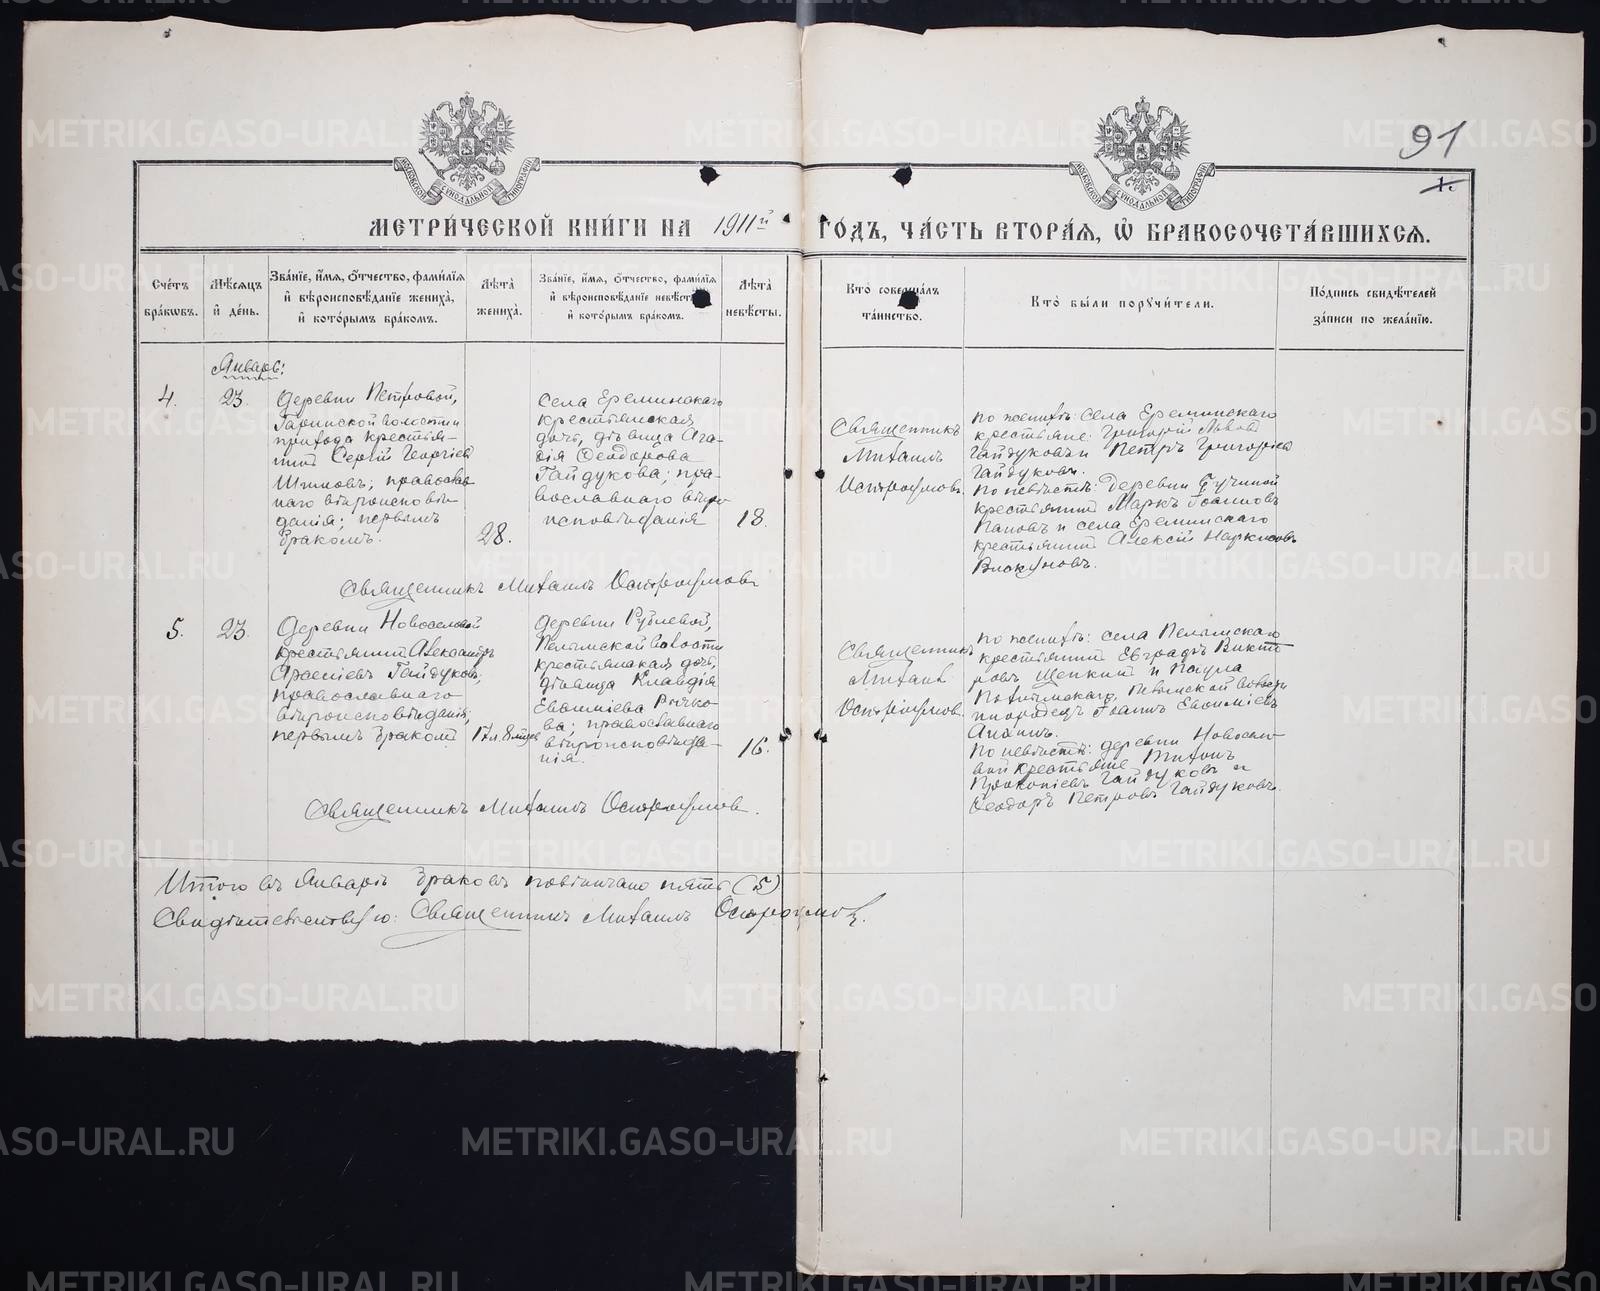 91
1.
МЕТРИЧЕСКОЙ КНИГИ НА 1911й ГОДЪ, ЧАСТЬ ВТОРАЯ, Ѡ БРАКОСОЧЕТАВШИХСЯ.
Счетъ браковъ.
Мѣсяцъ и день.
Званіе, имя, отчество, фамилія и вѣроисповѣданіе жениха, и которымъ бракомъ.
Лѣта жениха.
Званіе, имя, отчество, фамилія и вѣроисповѣданіе невѣсты, и которымъ бракомъ.
Лѣта невѣсты.
Кто совершалъ таинство.
Кто были поручители.
Подпись свидѣтелей записи по желанію.
Январь:
4.
23.
Деревни Петровой,
Гаринской волости
прихода крестья-
нинъ Сергій Георгіевъ
православ
наго вѣроисповѣ-
данія; первымъ
бракомъ.
28.
Села Ереминскаго
крестьянская
дочь, дѣвица Ага-
ѳія Ѳеодорова
Гайдукова; пра-
вославнаго вѣро
исповѣданія
18.
Священникъ
Михаилъ
Остроумовъ.
По женихѣ: села Ереминскаго
крестьяне: Григорій Львовъ
Гайдуковъ и Петръ Григорьевъ
Гайдуковъ.
По невѣстѣ: деревни
крестьянинъ Маркъ Іоанновъ
Пановъ и села Ереминскаго
крестьянинъ Алексій Наркисовъ
Вискуновъ.
Священникъ Михаилъ Остроумовъ
5.
23.
Деревни Новоселовой
крестьянинъ Александръ
Арсеніевъ Гайдуковъ;
православнаго
вѣроисповѣданія;
первымъ бракомъ
17 л. 8 мѣсяц
Деревни Рублевой,
Пелымской волости
крестьянская дочь,
дѣвица Клавдія
Евѳиміева
ва; православнаго
вѣроисповѣда-
нія.
16.
Священникъ
Михаилъ
Остроумовъ.
По женихѣ: села Пелымскаго
крестьянинъ Евградъ Викто
ровъ Щепкинъ и Паула
Пелымской волости
инородецъ Іоаннъ Евѳиміевъ
По невѣстѣ: деревни Новосело
вой крестьяне
Прокопіевъ Гайдуковъ и
Ѳеодоръ Петровъ Гайдуковъ.
Священникъ Михаилъ Остроумовъ.
Итого въ Январѣ браковъ повѣнчано пять (5)
Свидѣтельствую: Священникъ Михаилъ Остроумовъ.
METRIKI.GASO-URAL.RU